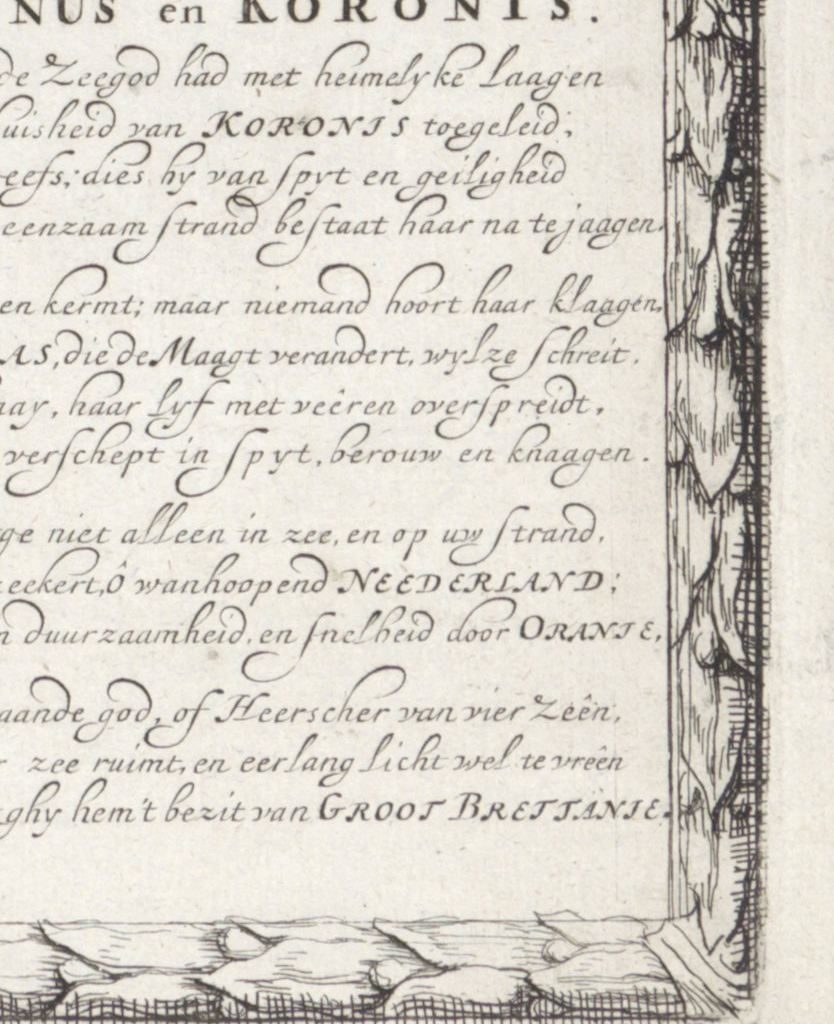 NUS en KORONIS.
de Zeegod had met heimelyke laagen
uisheid van KORONIS toegeleid;
eefs; dies hy van spyt en geiligheid
eenzaam strand bestaat haar na te jaagen.
en kermt; maar niemand hoort haar klaagen,
AS, die de Maagt verandert, wylze schreit.
ay, haar lyf met veêren overspreidt,
verschept in spyt, berouw en knaagen.
ge niet alleen in zee, en op uw strand,
eekert, ô wanhoopend NEEDERLAND;
n duurzaamheid, en snelheid door ORANJE,
aande god, of Heerscher van vier Zeên,
r zee ruimt, en eerlang licht wel te vreên
ghy hem't bezit van GROOT BRETTANJE.